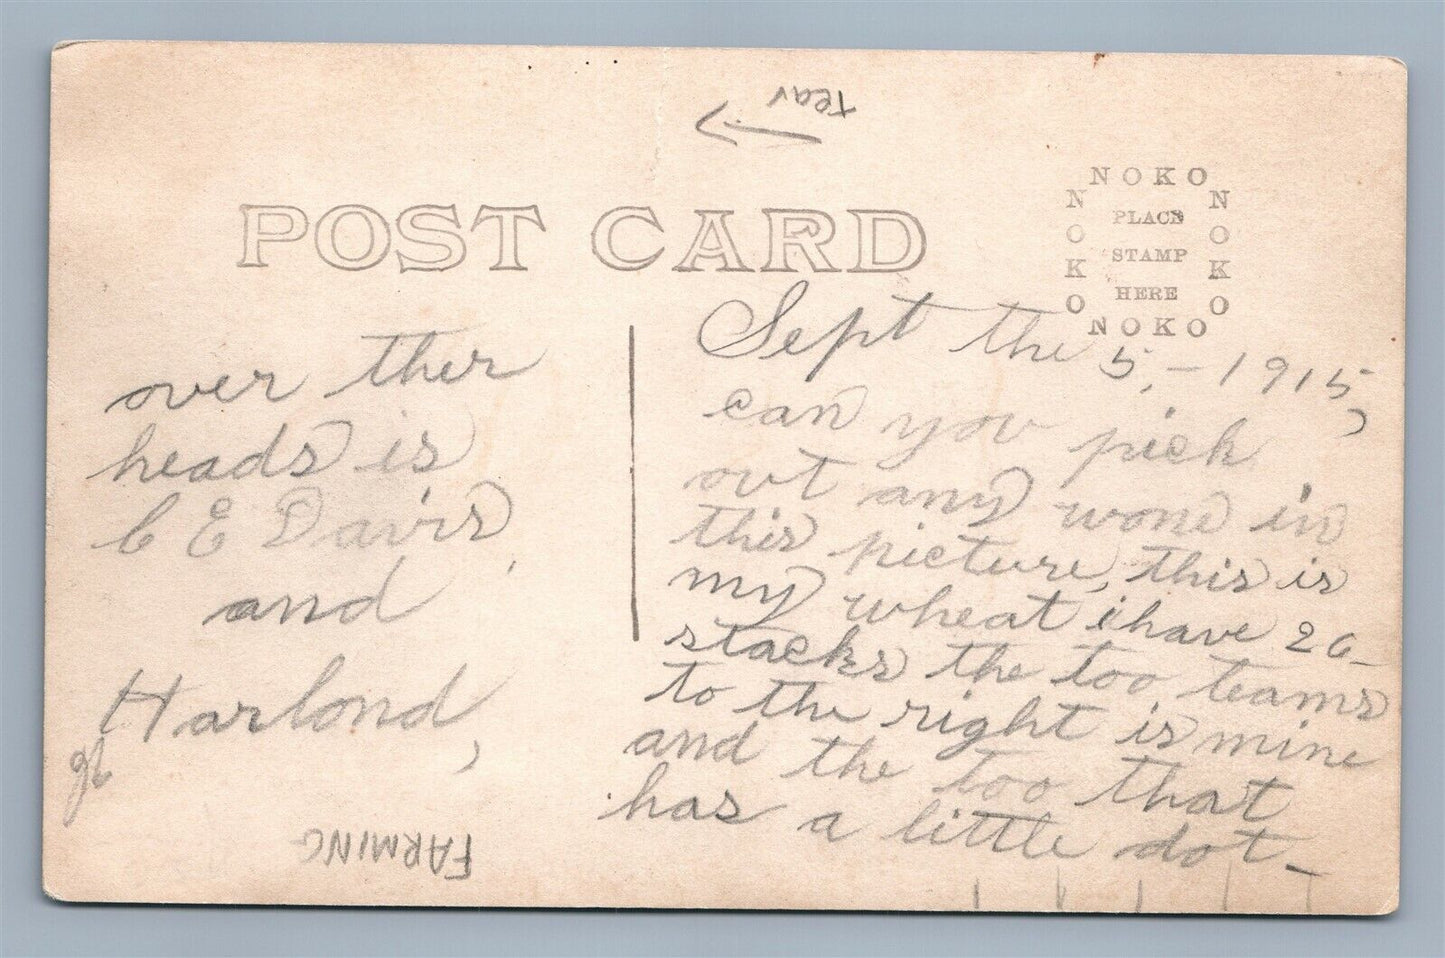 tear
POST CARD
NOKO
NOKO
PLACE
STAMP
HERE
NOKO
NOKO
Sept the 5, - 1915,
can you pick
out any wone in
this picture, this is
my wheat i have 26
stacks the too teams
to the right is mine
and the too that
has a little dot -
over ther
heads is
C E Davis,
and
Harlond,
FARMING